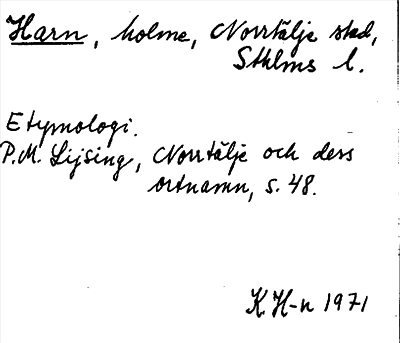 Harn, holme, Norrtälje stad,
Sthlms l.
Etymologi.
P.M. Lijsing, Norrtälje och dess
ortnamn, s. 48.
K H-n 1971